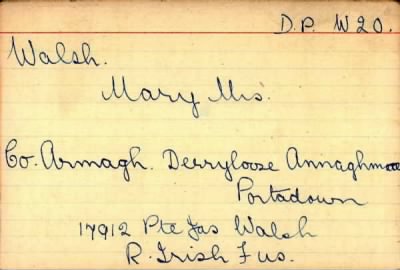 D.P. W20.
Walsh.
Mary Mrs.
Co. Armagh. Derryloose Annaghmore
Portadown
17912 Pte Jas Walsh
R. Irish Fus.